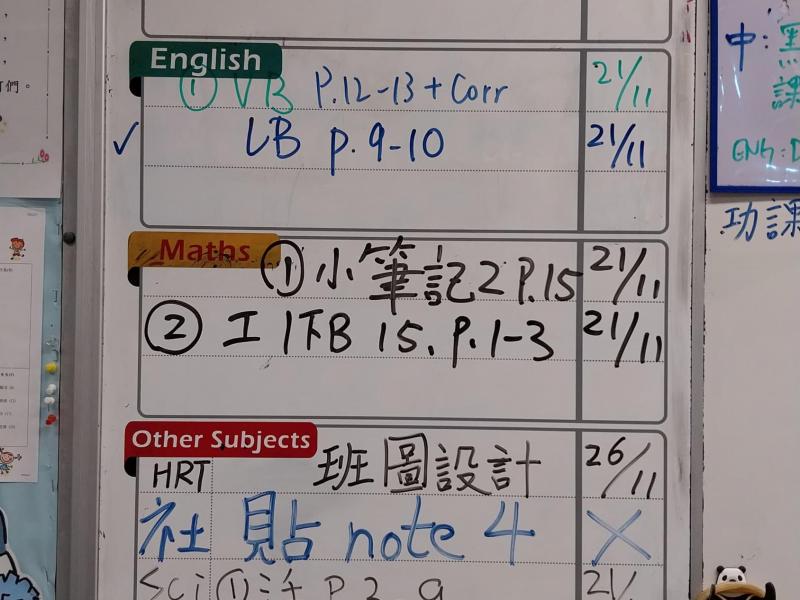 English
① VB P.12-13 + Corr 21/11
✓ LB p. 9-10 21/11
Maths
① 小筆記2 P.15 21/11
② 工1下B 15. P.1-3 21/11
Other Subjects
HRT 班圖設計 26/11
社 貼 note 4 X
Sci ① P.2 9 21/
們。
中:
ENG:
功課